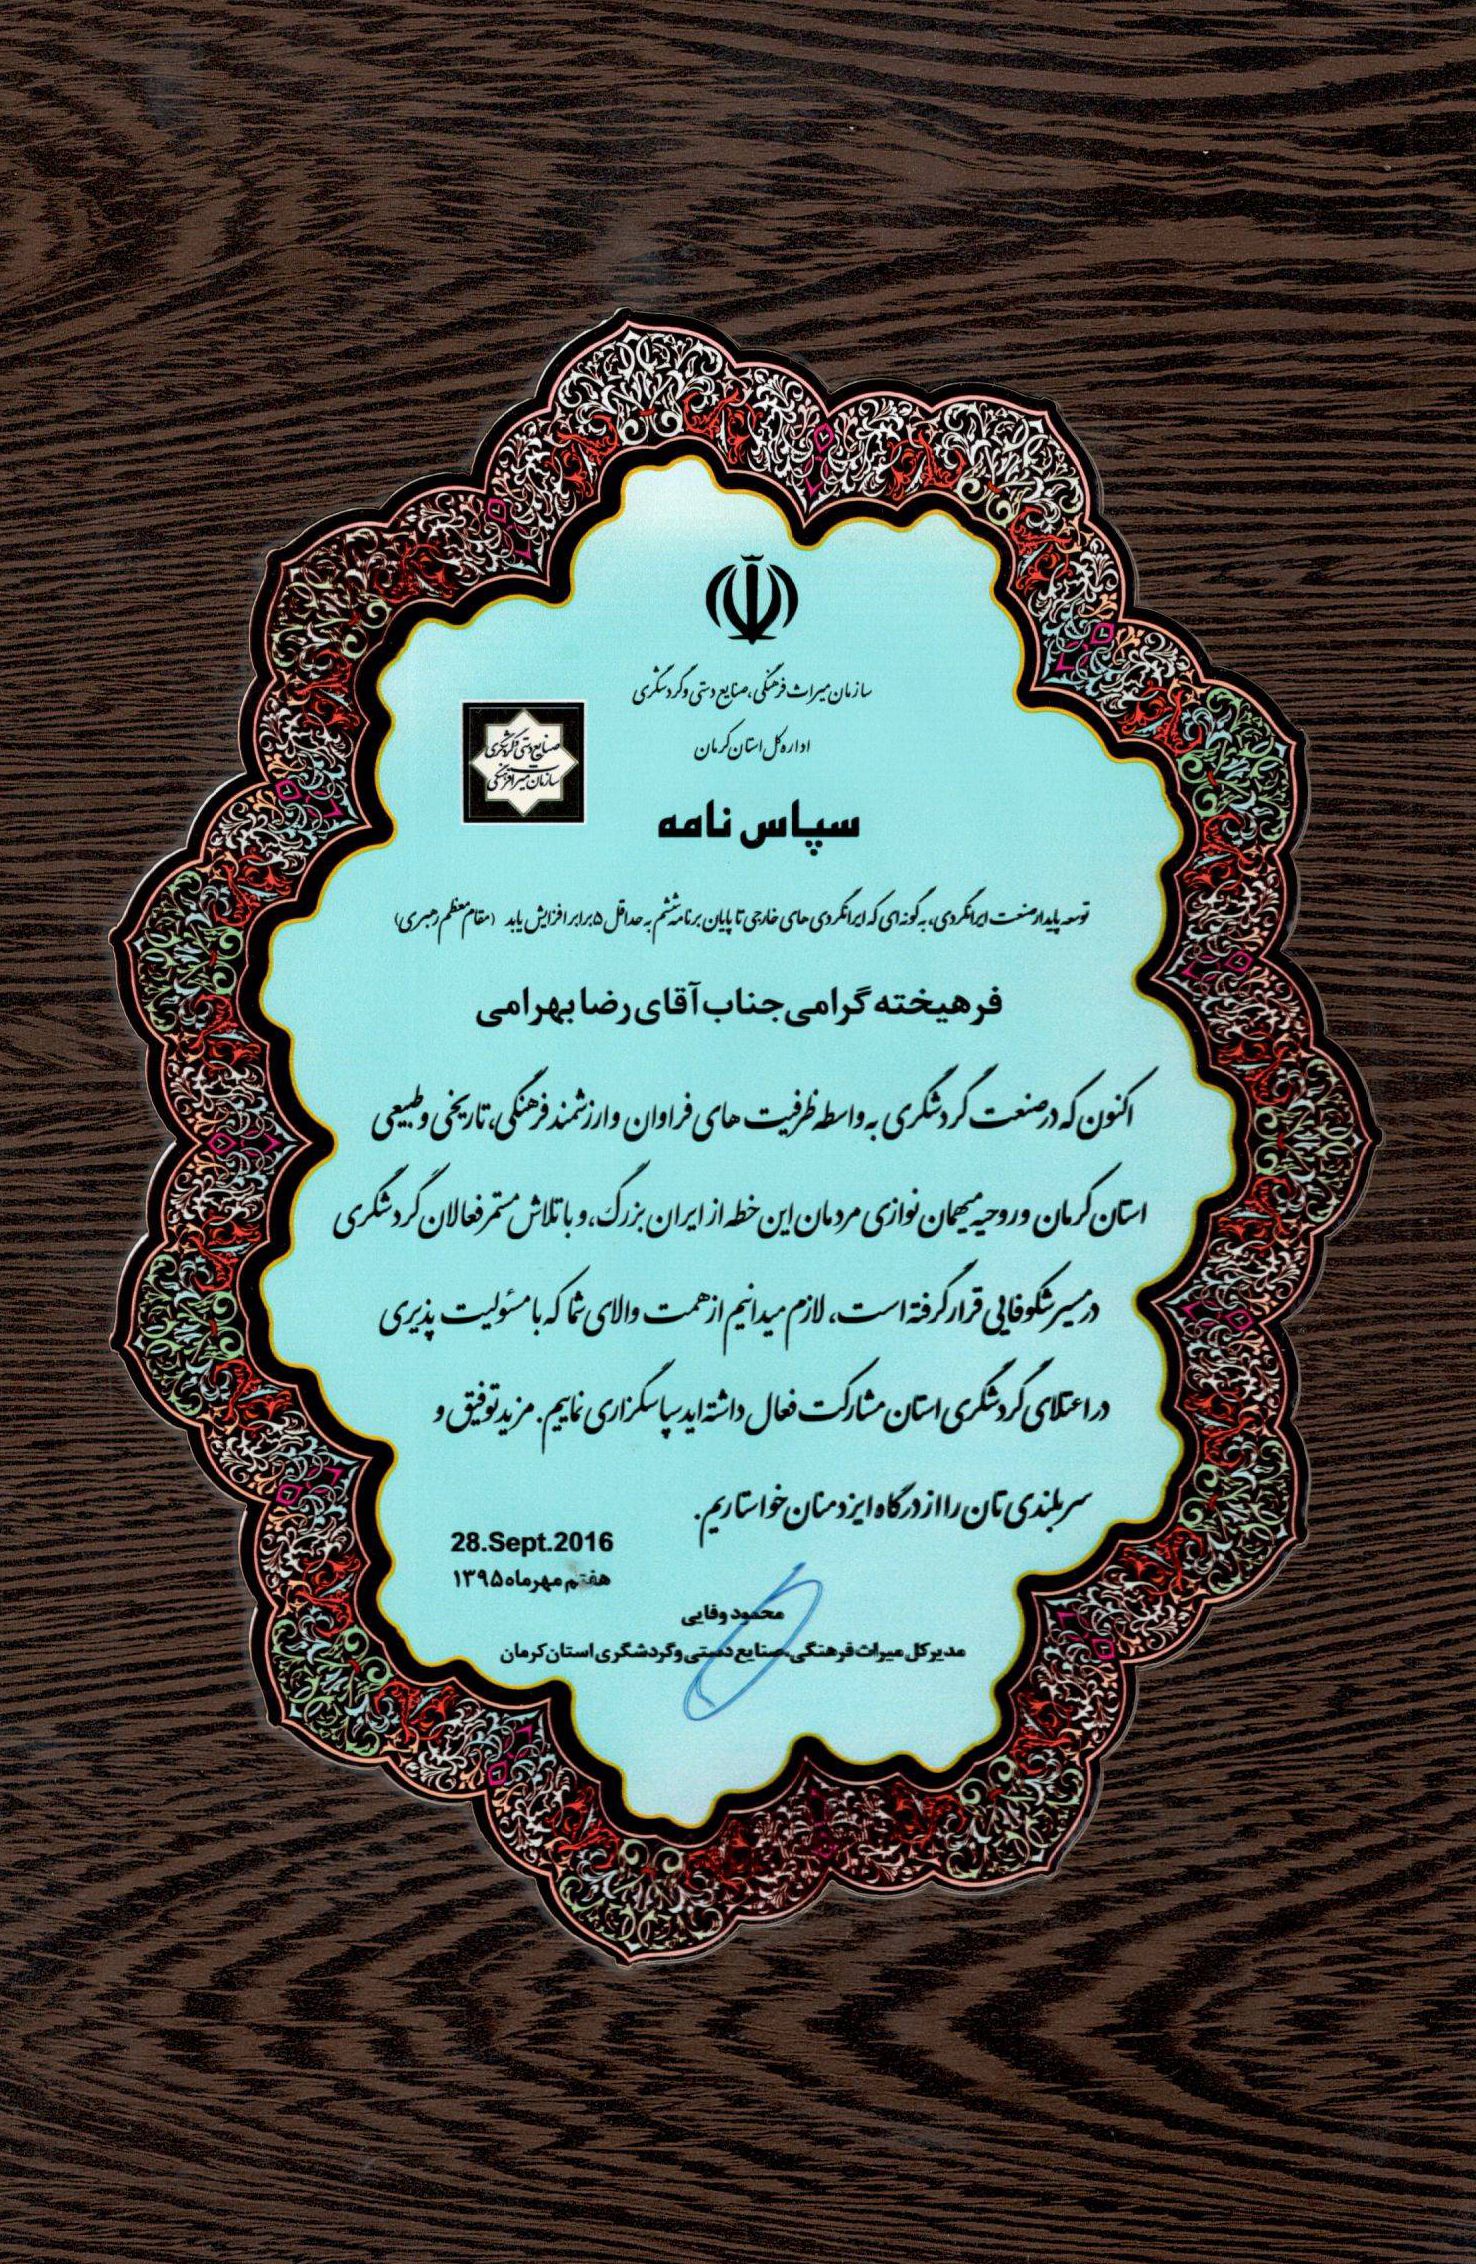 سازمان میراث فرهنگی، صنایع دستی و گردشگری
اداره کل استان کرمان
صنایع دستی و گردشگری
سازمان میراث فرهنگی
سپاس نامه
توسعه پایدار صنعت ایرانگردی، به گونه ای که ایرانگردی های خارجی تا پایان برنامه ششم به حداقل ۵ برابر افزایش یابد (مقام معظم رهبری)
فرهیخته گرامی جناب آقای رضا بهرامی
اکنون که در صنعت گردشگری به واسطه ظرفیت های فراوان و ارزشمند فرهنگی، تاریخی و طبیعی
استان کرمان و روحیه میهمان نوازی مردمان این خطه از ایران بزرگ، و با تلاش مستمر فعالان گردشگری
در مسیر شکوفایی قرار گرفته است، لازم میدانیم از همت والای شما که با مسئولیت پذیری
در اعتلای گردشگری استان مشارکت فعال داشته اید سپاسگزاری نماییم. مزید توفیق و
سربلندی تان را از درگاه ایزد منان خواستاریم.
28.Sept.2016
هفتم مهرماه ۱۳۹۵
محمود وفایی
مدیرکل میراث فرهنگی، صنایع دستی و گردشگری استان کرمان